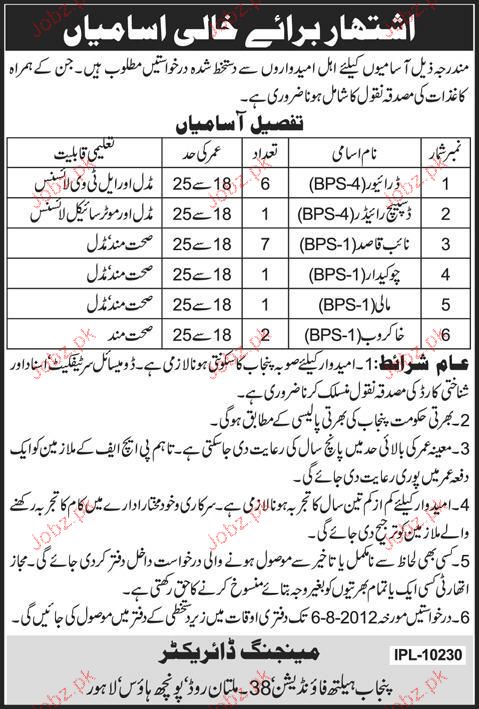 اشتہار برائے خالی اسامیاں
مندرجہ ذیل آسامیوں کیلئے اہل امیدواروں سے دستخط شدہ درخواستیں مطلوب ہیں۔ جن کے ہمراہ
کاغذات کی مصدقہ نقول کا شامل ہونا ضروری ہے۔
تفصیل آسامیاں
نمبر شمار نام اسامی تعداد عمر کی حد تعلیمی قابلیت
1 ڈرائیور (BPS-4) 6 18 سے 25 مڈل اور ایل ٹی وی لائسنس
2 ڈسپیچ رائیڈر (BPS-4) 1 18 سے 25 مڈل اور موٹر سائیکل لائسنس
3 نائب قاصد (BPS-1) 7 18 سے 25 صحت مند/مڈل
4 چوکیدار (BPS-1) 1 18 سے 25 صحت مند/مڈل
5 مالی (BPS-1) 1 18 سے 25 صحت مند/مڈل
6 خاکروب (BPS-1) 2 18 سے 25 صحت مند
عام شرائط: 1۔ امیدوار کیلئے صوبہ پنجاب کا سکونتی ہونا لازمی ہے۔ ڈومیسائل سرٹیفکیٹ اسناد اور
شناختی کارڈ کی مصدقہ نقول منسلک کرنا ضروری ہے۔
2۔ بھرتی حکومت پنجاب کی بھرتی پالیسی کے مطابق ہوگی۔
3۔ معینہ عمر کی بالائی حد میں پانچ سال کی رعایت دی جاسکتی ہے۔ تاہم پی ایچ ایف کے ملازمین کو ایک
دفعہ عمر میں پوری رعایت دی جائے گی۔
4۔ امیدوار کیلئے کم از کم تین سال کا تجربہ ہونا لازمی ہے۔ سرکاری و خود مختار ادارے میں کام کا تجربہ رکھنے
والے ملازمین کو ترجیح دی جائے گی۔
5۔ کسی بھی لحاظ سے نامکمل یا تاخیر سے موصول ہونے والی درخواست داخل دفتر کر دی جائے گی۔ مجاز
اتھارٹی کسی ایک یا تمام بھرتیوں کو بغیر وجہ بتائے منسوخ کرنے کا حق رکھتی ہے۔
6۔ درخواستیں مورخہ 6-8-2012 تک دفتری اوقات میں زیر دستخطی کے دفتر میں موصول کی جائیں گی۔
مینجنگ ڈائریکٹر
IPL-10230
پنجاب ہیلتھ فاؤنڈیشن '38۔ ملتان روڈ' پونچھ ہاؤس' لاہور
Jobz.pk